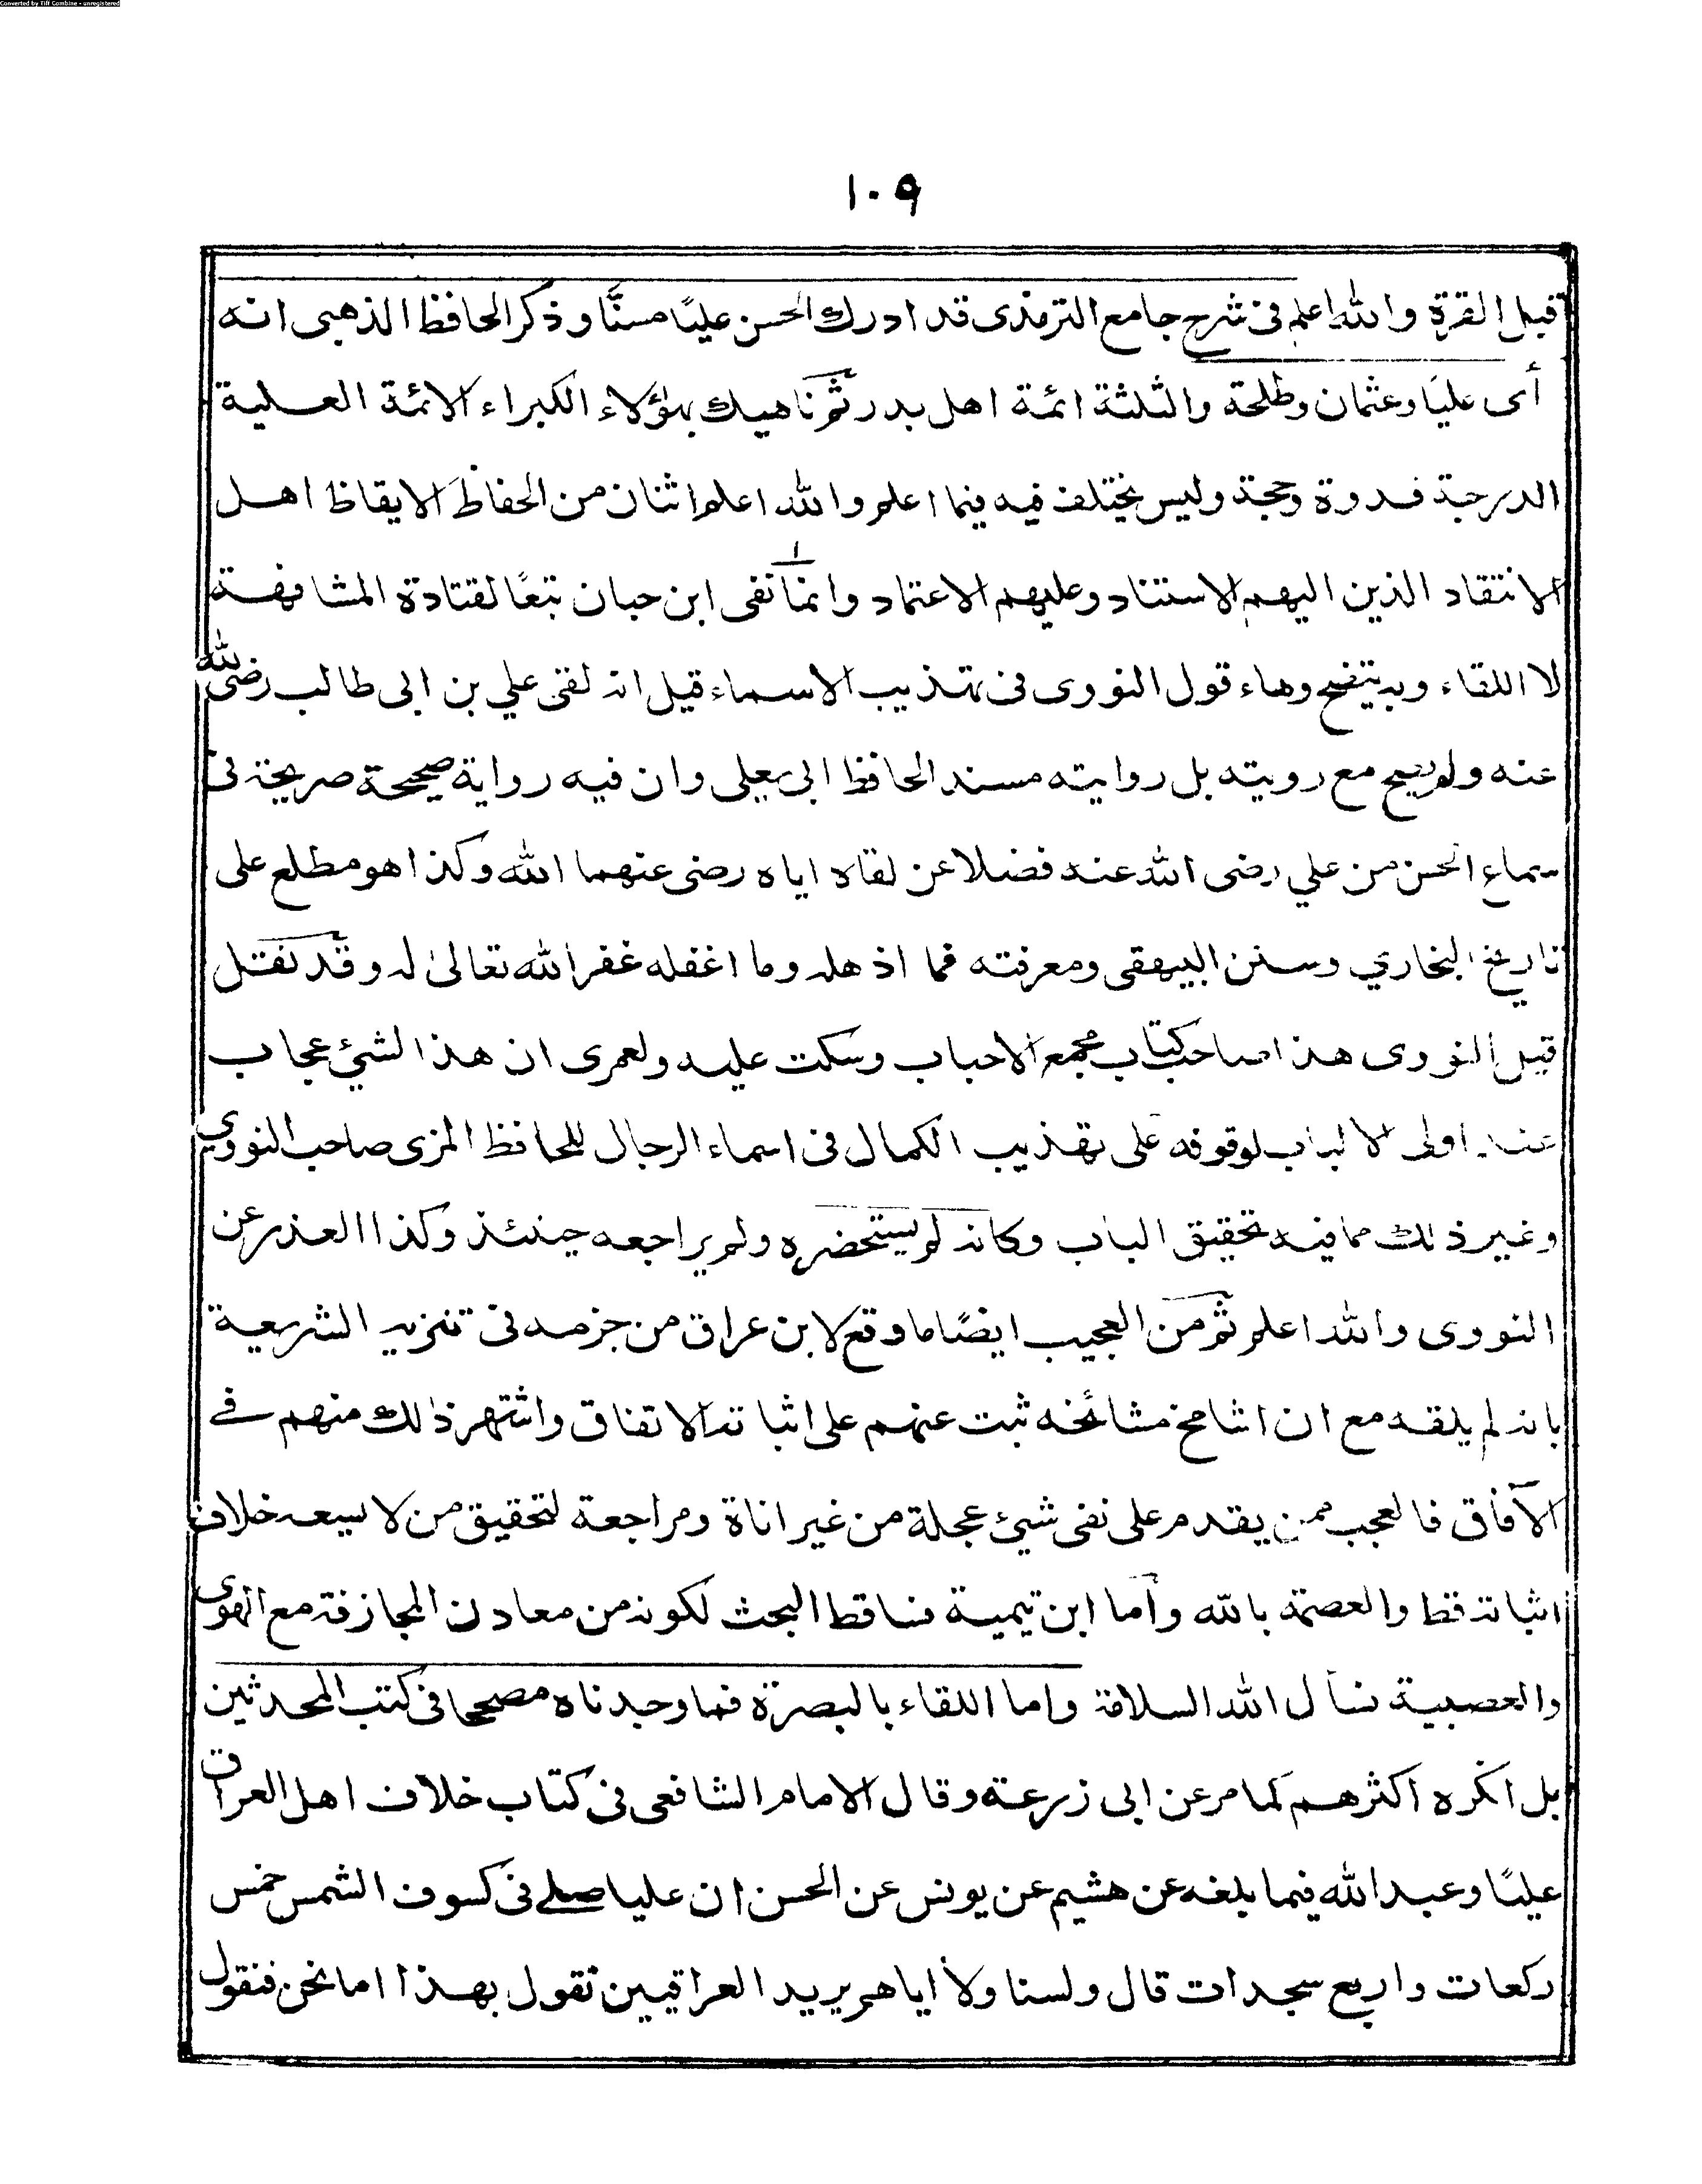 Converted by Tiff Combine - unregistered
١٠٩
قبل القرة والله اعلم فى شرح جامع الترمذى قد ادرك الحسن عليًا مسنًّا وذكر الحافظ الذهبى انه
أى عليًا وعثمان وطلحة والثلثة ائمة اهل بدر ثم ناهيك بهؤلاء الكبراء الائمة العلية
الدرجة قدوة وحجة وليس يختلف فيه فيما اعلم والله اعلم اثنان من الحفاظ الايقاظ اهل
الانتقاد الذين اليهم الاستناد وعليهم الاعتماد وانما نفى ابن حبان تبعًا لقتادة المشافهة
لا اللقاء وبه يتضح وهاء قول النووى فى تهذيب الاسماء قيل انه لقى علي بن ابى طالب رضى الله
عنه ولم يصح مع رويته بل روايته مسند الحافظ ابى يعلى وان فيه رواية صحيحة صريحة فى
سماع الحسن من علي رضى الله عنه فضلا عن لقاه اياه رضى عنهما الله وكذا هو مطلع على
تاريخ البخاري وسنن البيهقى ومعرفته فما اذهله وما اغفله غفر الله تعالىٰ له وقد نقتل
قيل النووى هذا صاحب كتاب مجمع الاحباب وسكت عليه ولعمرى ان هذا الشيئ عجاب
عند اولى الالباب لوقوفه على تهذيب الكمال فى اسماء الرجال للحافظ المزى صاحب النووي
وغير ذلك مما فيه تحقيق الباب وكانه لم يستحضره ولم يراجعه حينئذ وكذا العذر عن
النووى والله اعلم ثم من العجيب ايضًا ما وقع لابن عراق من جزمه فى تنزيه الشريعة
بانه لم يلقه مع ان اشامخ مشائخه ثبت عنهم على اثباته الاتفاق واشتهر ذلك منهم فے
الآفاق فالعجب ممن يقدم على نفى شيئ عجلة من غير اناة ومراجعة لتحقيق من لا يسعه خلاف
اثباته قط والعصمة بالله وأما ابن تيمية فساقط البحث لكونه من معادن المجازفة مع الهوى
والعصبية نسأل الله السلامة واما اللقاء بالبصرة فما وجدناه مصححا فى كتب المحدثين
بل انكره اكثرهم كما مر عن ابى زرعة وقال الامام الشافعى فى كتاب خلاف اهل العراق
عليًا وعبد الله فيما بلغه عن هشيم عن يونس عن الحسن ان عليا صلے فى كسوف الشمس خمس
ركعات واربع سجدات قال ولسنا ولا اياهم يريد العراقيين نقول بهذا اما نحن فنقول